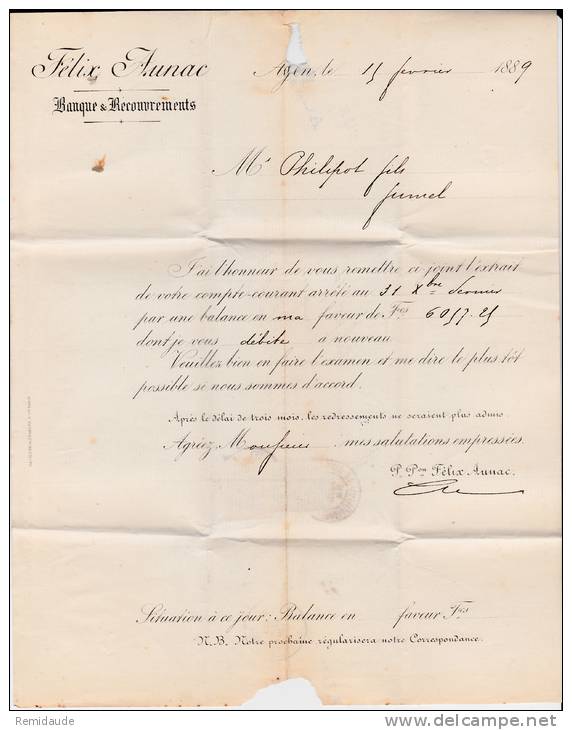 Félix Aunac
Banque & Recouvrements
Agen, le 15 février 1889
Mr Philipot fils
Jumel
J'ai l'honneur de vous remettre ci-joint l'extrait
de votre compte-courant arrêté au 31 Xbre dernier
par une balance en ma faveur de Fcs 6057.25
dont je vous débite à nouveau
Veuillez bien en faire l'examen et me dire le plus tôt
possible si nous sommes d'accord.
Après le délai de trois mois, les redressements ne seraient plus admis.
Agréez, Monsieur mes salutations empressées.
P. Pon Félix Aunac.
Situation à ce jour: Balance en faveur Fcs
N.B. Notre prochaine régularisera notre Correspondance.
Remidaude
www.delcampe.net